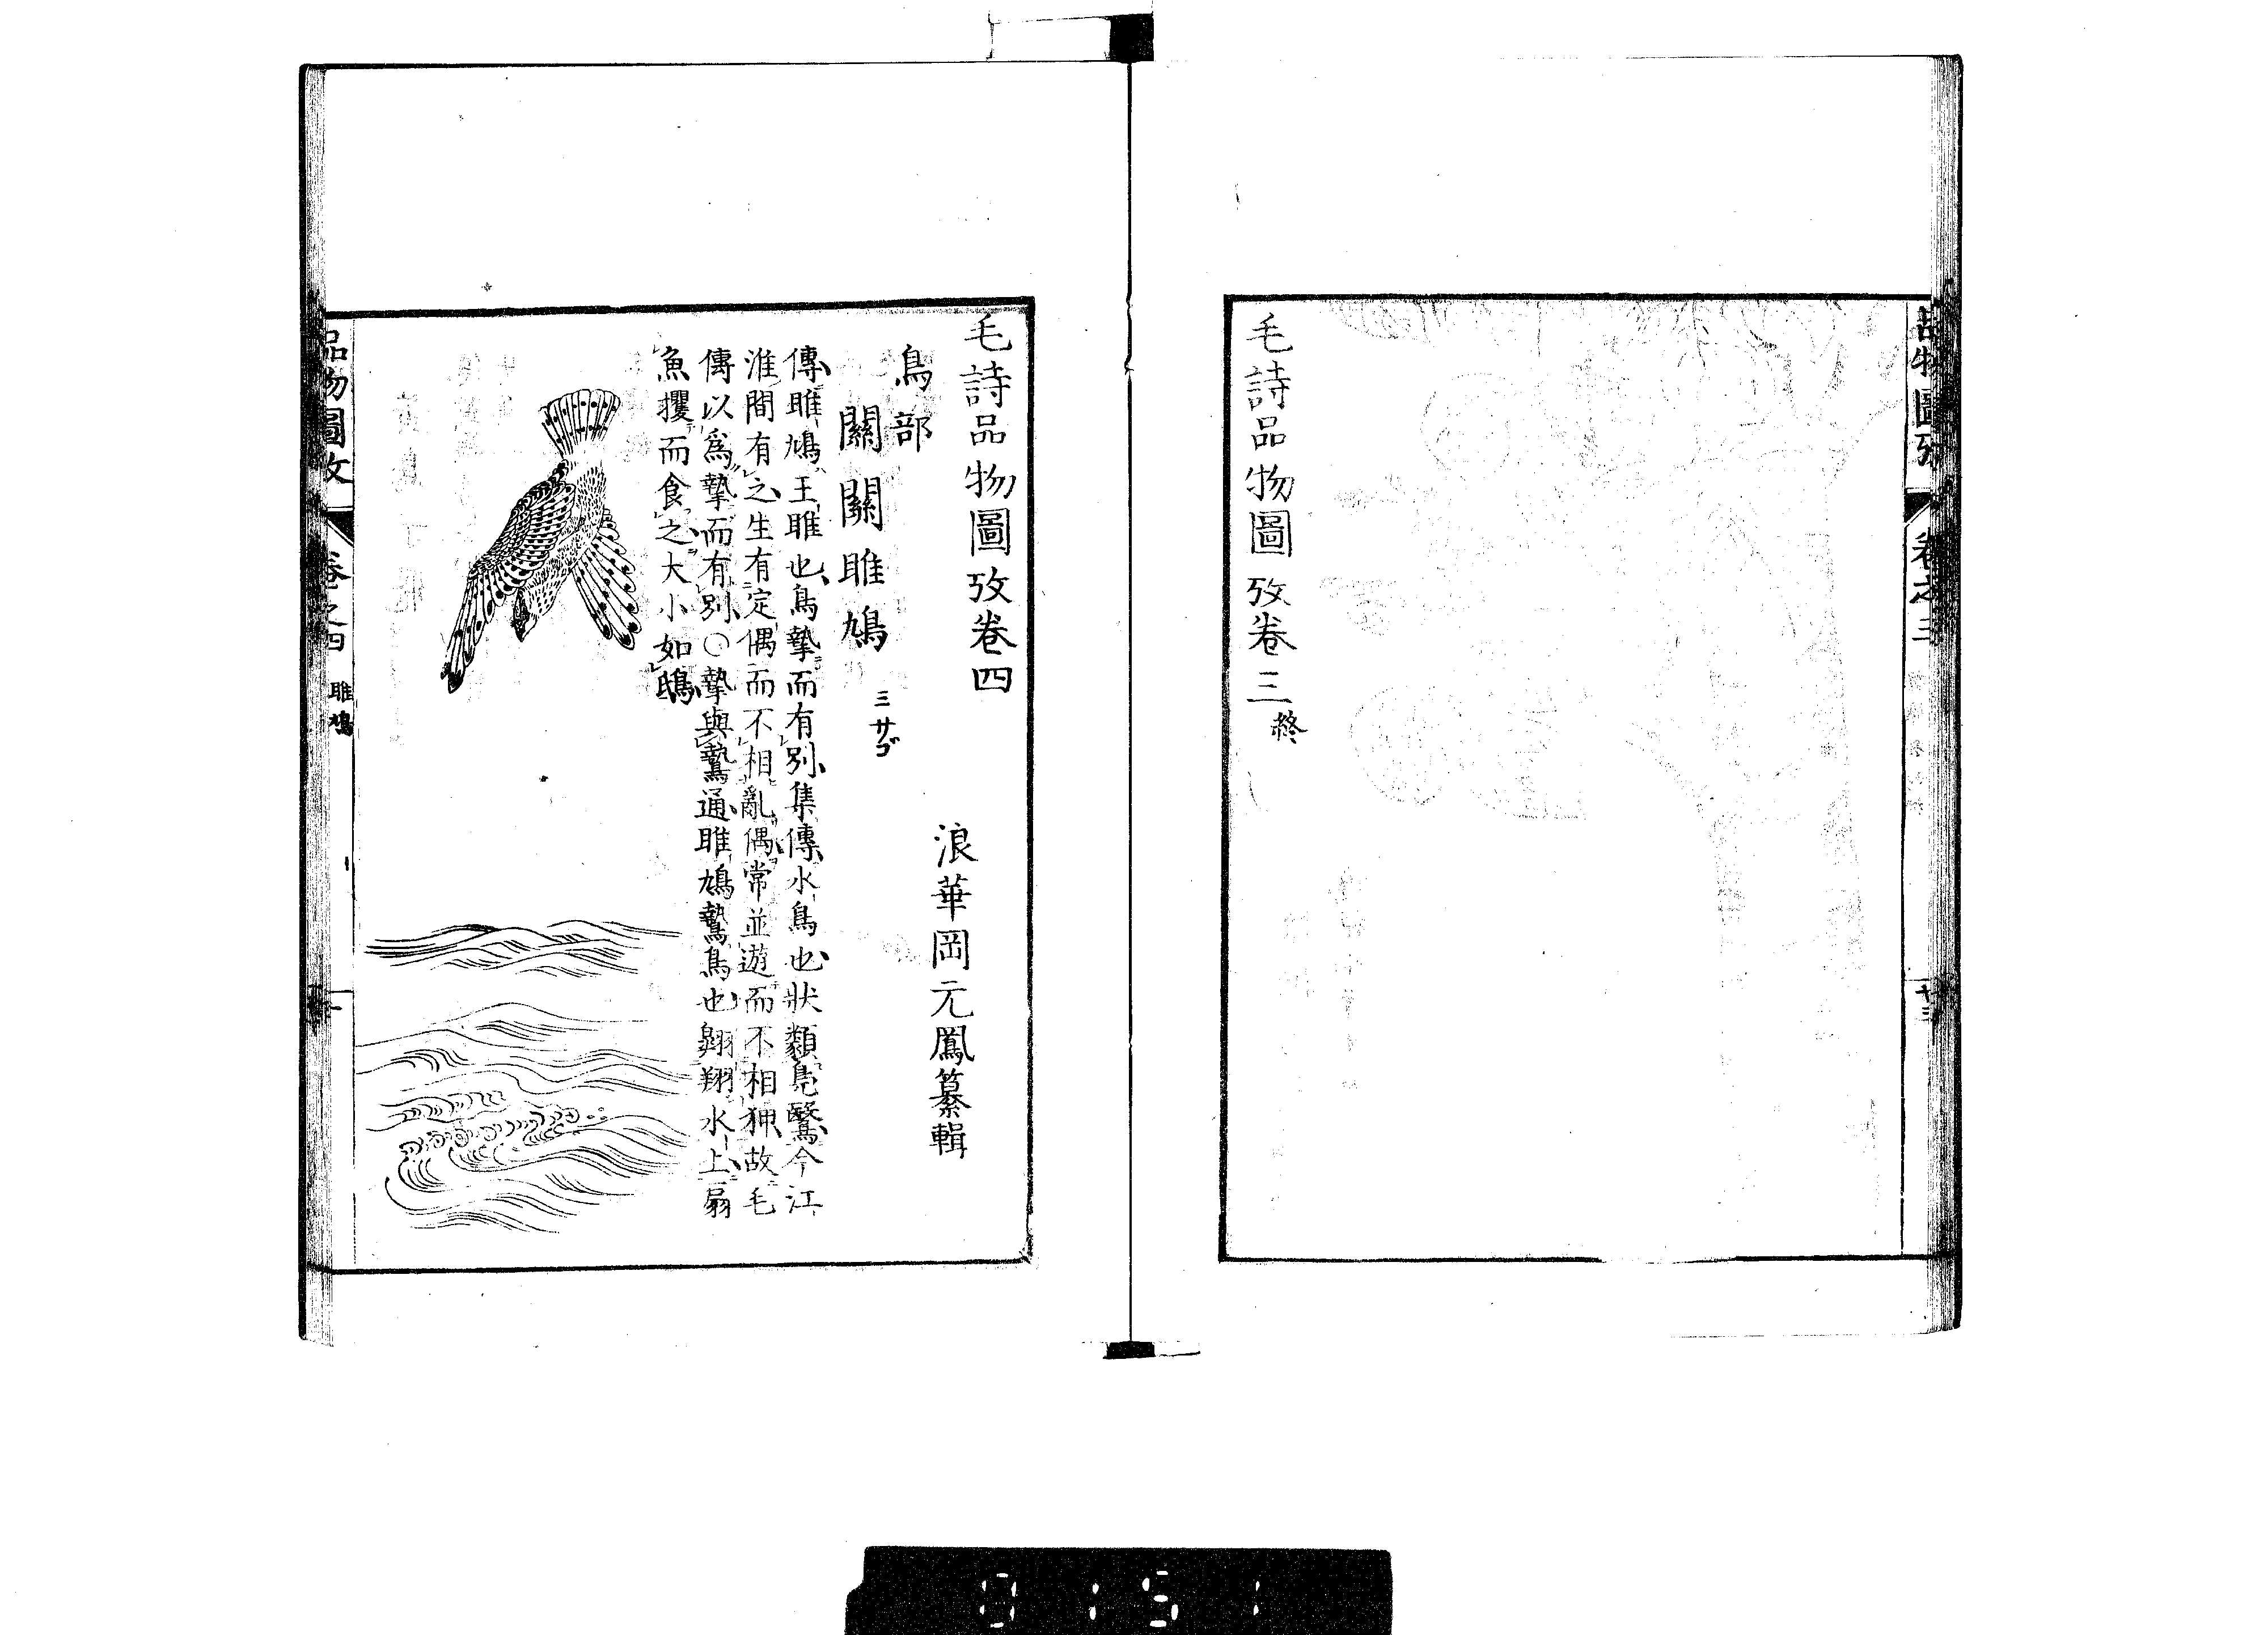 品物圖攷
卷之三
十三
毛詩品物圖攷卷三終
毛詩品物圖攷卷四
浪華岡元鳳纂輯
鳥部
關關雎鳩
ミサゴ
傳雎鳩王雎也鳥摯而有別集傳水鳥也狀類鳧鷖今江
淮間有之生有定偶而不相亂偶常並遊而不相狎故毛
傳以爲摯而有別○摯與鷙通雎鳩鷙鳥也翺翔水上扇
魚攫而食之大小如鴟
品物圖攷
卷之四
雎鳩
一
0151